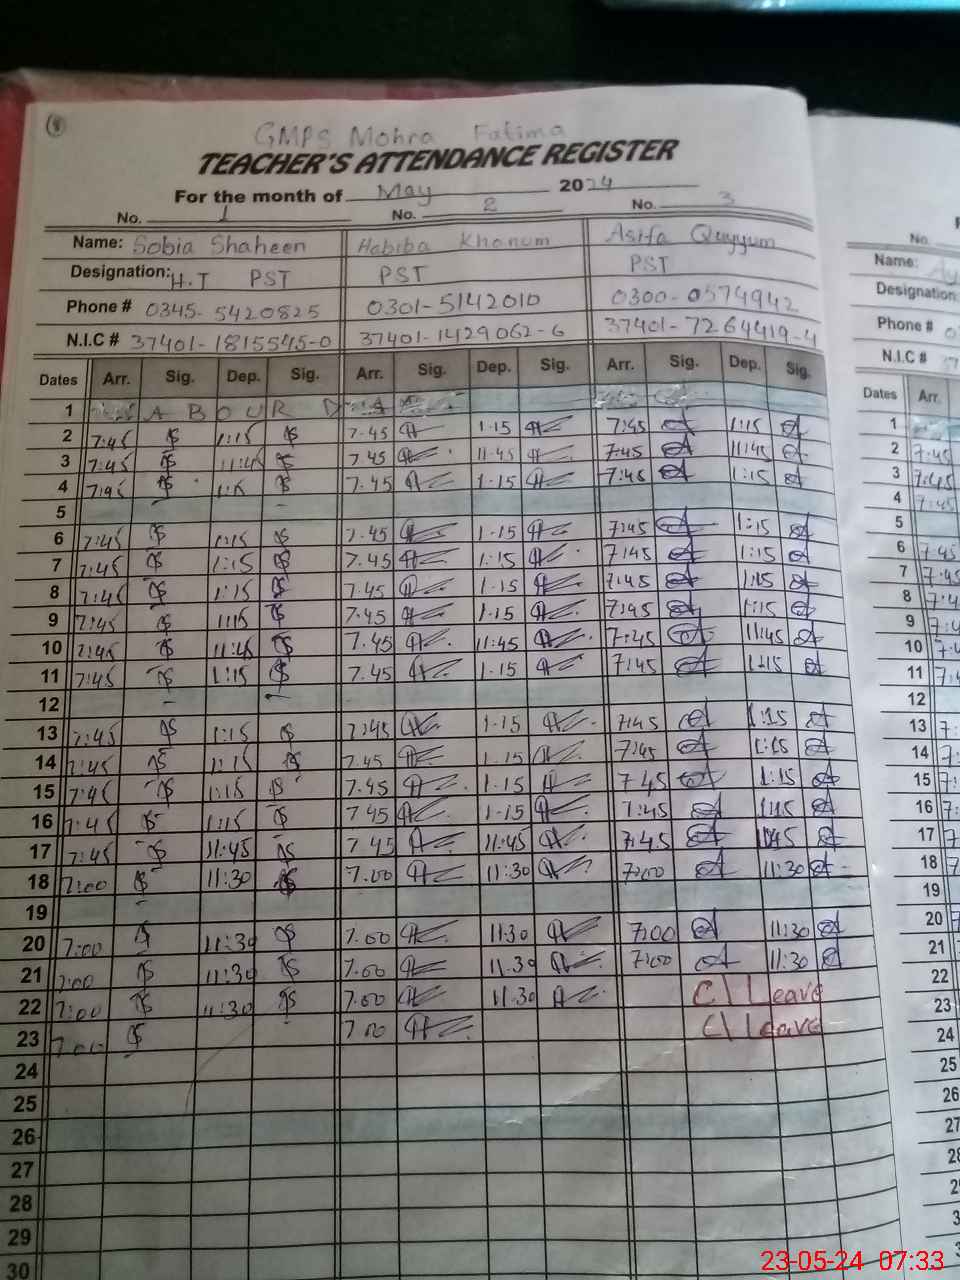 8
GMPS Mohra Fatima
TEACHER'S ATTENDANCE REGISTER
For the month of May 2024
No. 1 No. 2 No. 3
Name: Sobia Shaheen Habiba Khanum Asifa Qayyum
Designation: H.T PST PST PST
Phone # 0345-5420825 0301-5142010 0300-0574942
N.I.C # 37401-1815545-0 37401-1429062-6 37401-7264419-4
Dates Arr. Sig. Dep. Sig. Arr. Sig. Dep. Sig. Arr. Sig. Dep. Sig.
1 L A B O U R D A
2 7:45 1:15 7.45 1.15 7:45 1:15
3 7:45 11:45 7.45 11.45 7:45 11:45
4 7:45 1:15 7.45 1.15 7:45 1:15
5
6 7:45 1:15 7.45 1.15 7:45 1:15
7 7:45 1:15 7.45 1.15 7:45 1:15
8 7:45 1:15 7.45 1.15 7:45 1:15
9 7:45 1:15 7.45 1.15 7:45 1:15
10 7:45 11:45 7.45 11:45 7:45 11:45
11 7:45 1:15 7.45 1.15 7:45 1:15
12
13 7:45 1:15 7:45 1.15 7:45 1:15
14 7:45 1:15 7.45 1.15 7:45 1:15
15 7:45 1:15 7.45 1.15 7:45 1:15
16 7:45 1:15 7.45 1.15 7:45 1:15
17 7:45 11:45 7.45 11:45 7:45 11:45
18 7:00 11:30 7.00 11:30 7:00 11:30
19
20 7:00 11:30 7.00 11.30 7:00 11:30
21 7:00 11:30 7.00 11.30 7:00 11:30
22 7:00 11:30 7.00 11.30 C\Leave
23 7:00 7.00 C\Leave
24
25
26
27
28
29
30
No.
Name: Ay
Designation:
Phone # 0
N.I.C # 37
Dates Arr.
1
2 7:45
3 7:45
4 7:45
5
6 7:45
7 7:45
8 7:4
9 7:4
10 7:4
11 7:4
12
13 7:
14 7:
15 7:
16 7:
17 7:
18 7
19
20 7
21 7
22
23
24
25
26
27
28
23-05-24 07:33